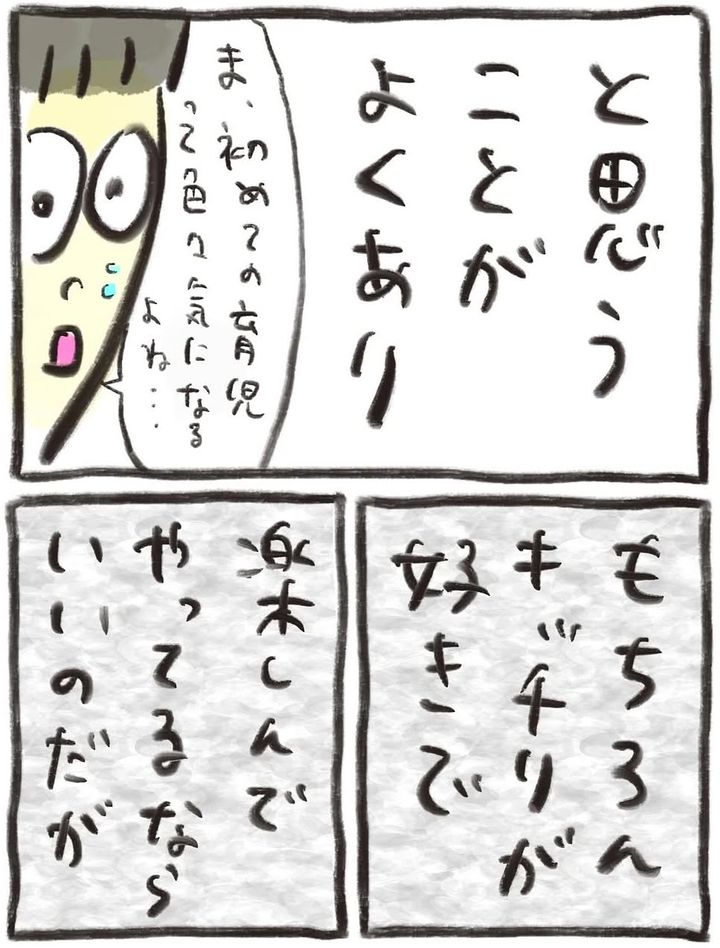 と思う
ことが
よくあり
ま、初めての育児
って色々気になる
よね…
もちろん
キッチリが
好きで
楽しんで
やってるなら
いいのだが